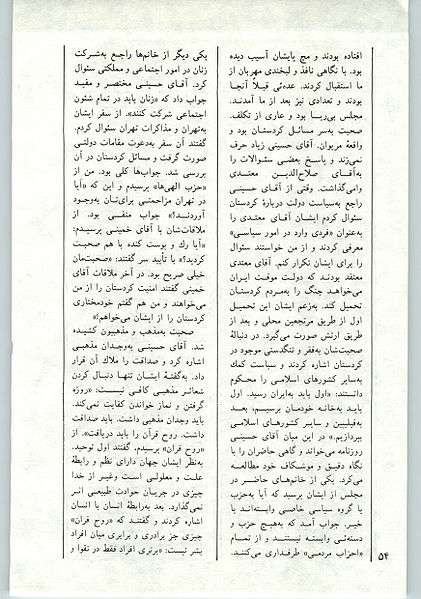 افتاده بودند و مچ پایشان آسیب دیده
بود. با نگاهی نافذ و لبخندی مهربان از
ما استقبال کردند. عده‌ئی قبلاً آنجا
بودند و تعدادی نیز بعد از ما آمدند.
مجلس بی‌ریا بود و عاری از تکلف.
صحبت به‌سر مسائل کردستان بود و
واقعهٔ مریوان. آقای حسینی زیاد حرف
نمی‌زند و پاسخ بعضی سئوالات را
به‌آقای صلاح‌الدین معتدی
وامی‌گذاشت. وقتی از آقای حسینی
راجع به‌سیاست دولت دربارهٔ کردستان
سئوال کردم ایشان آقای معتدی را
به‌عنوان «فردی وارد در امور سیاسی»
معرفی کردند و از من خواستند سئوال
را برای ایشان تکرار کنم. آقای معتدی
معتقد بودند که دولت موقت ایران
می‌خواهد جنگ را به‌مردم کردستان
تحمیل کند. به‌زعم ایشان این تحمیل
اول از طریق مرتجعین محلی و بعد از
طریق ارتش صورت می‌گیرد. در دنبالهٔ
صحبت‌شان به‌فقر و تنگدستی موجود در
کردستان اشاره کردند و سیاست کمک
به‌سایر کشورهای اسلامی را محکوم
دانستند: «اول باید به‌ایران رسید. اول
باید به‌خانه خودمان برسیم، بعد
به‌فیلیپین و سایر کشورهای اسلامی
بپردازیم.» در این میان آقای حسینی
روزنامه می‌خواند و گاهی حاضران را با
نگاه دقیق و موشکاف خود مطالعه
می‌کرد. یکی از خانم‌های حاضر در
مجلس از ایشان پرسید که آیا به‌حزب
یا گروه سیاسی خاصی وابسته‌اند یا
خیر. جواب آمد که به‌هیچ حزب و
دسته‌ئی وابسته نیستند و از تمام
«احزاب مردمی» طرفداری می‌کنند.
یکی دیگر از خانم‌ها راجع به‌شرکت
زنان در امور اجتماعی و مملکتی سئوال
کرد. آقای حسینی مختصر و مفید
جواب داد که «زنان باید در تمام شئون
اجتماعی شرکت کنند». از سفر ایشان
به‌تهران و مذاکرات تهران سئوال کردم.
گفتند آن سفر به‌دعوت مقامات دولتی
صورت گرفت و مسائل کردستان در آن
بررسی شد. جواب‌ها کلی بود. من از
«حزب الهی‌ها» پرسیدم و این که «آیا
در تهران مزاحمتی برای‌تان به‌وجود
آوردند؟» جواب منفی بود. از
ملاقات‌شان با آقای خمینی پرسیدم:
«آیا رك و پوست کنده با هم صحبت
کردید؟» با تأیید سر گفتند: «صحبت‌مان
خیلی صریح بود. در آخر ملاقات آقای
خمینی گفتند امنیت کردستان را از من
می‌خواهند و من هم گفتم خودمختاری
کردستان را از ایشان می‌خواهم!»
صحبت به‌مذهب و مذهبیون کشیده
شد. آقای حسینی به‌وجدان مذهبی
اشاره کرد و صداقت را ملاك آن قرار
داد. به‌گفتهٔ ایشان تنها دنبال کردن
شعائر مذهبی کافی نیست: «روزه
گرفتن و نماز خواندن کفایت نمی‌کند.
باید وجدان مذهبی داشت. باید صداقت
داشت. روح قرآن را باید دریافت». از
«روح قرآن» پرسیدم. گفتند اول توحید.
به‌نظر ایشان جهان دارای نظم و رابطهٔ
علت و معلولی است وغیر از خدا
چیزی در جریان حوادث طبیعی اثر
نمی‌گذارد. بعد به‌رابطهٔ انسان با انسان
اشاره کردند و گفتند که «روح قرآن»
چیزی جز برادری و برابری میان افراد
بشر نیست: «برتری افراد فقط در تقوا و
۵۴